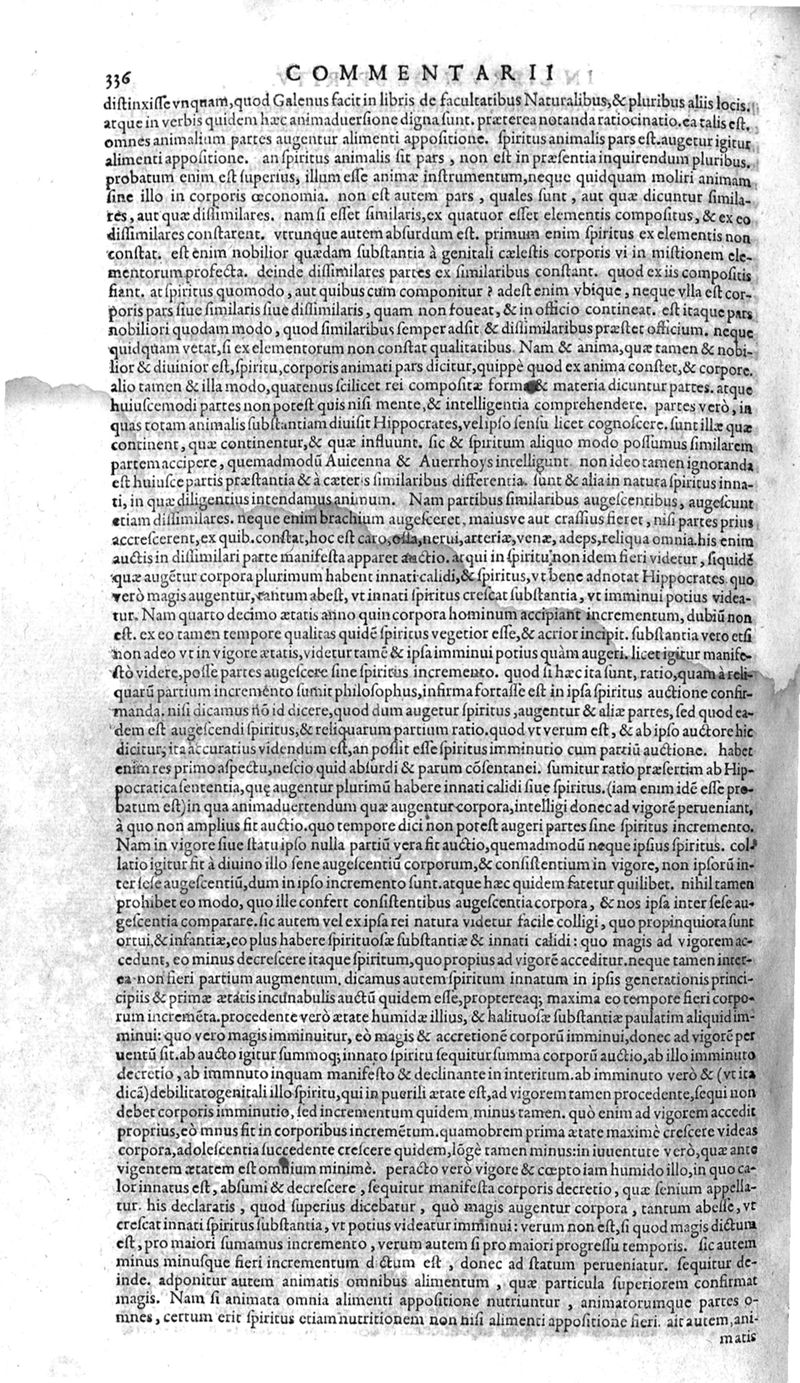 336 COMMENTARII
distinxisse vnquam, quod Galenus facit in libris de facultatibus Naturalibus, & pluribus aliis locis.
atque in verbis quidem hæc animaduersione digna sunt. præterea notanda ratiocinatio. ea talis est.
omnes animalium partes augentur alimenti appositione. spiritus animalis pars est. augetur igitur
alimenti appositione. an spiritus animalis sit pars, non est in præsentia inquirendum pluribus.
probatum enim est superius, illum esse animæ instrumentum, neque quidquam moliri animam
sine illo in corporis œconomia. non est autem pars, quales sunt, aut quæ dicuntur simila-
res, aut quæ dissimilares. nam si esset similaris, ex quatuor esset elementis compositus, & ex eo
dissimilares constarent. vtrunque autem absurdum est. primum enim spiritus ex elementis non
constat. est enim nobilior quædam substantia à genitali cælestis corporis vi in mistionem ele-
mentorum profecta. deinde dissimilares partes ex similaribus constant. quod ex iis compositis
fiant. at spiritus quomodo, aut quibus cum componitur? adest enim vbique, neque vlla est cor-
poris pars siue similaris siue dissimilaris, quam non foueat, & in officio contineat. est itaque pars
nobiliori quodam modo, quod similaribus semper adsit & dissimilaribus præstet officium. neque
quidquam vetat, si ex elementorum non constat qualitatibus. Nam & anima, quæ tamen & nobi-
lior & diuinior est, spiritu, corporis animati pars dicitur, quippè quod ex anima constet, & corpore.
alio tamen & illa modo, quatenus scilicet rei compositæ forma & materia dicuntur partes. atque
huiuscemodi partes non potest quis nisi mente, & intelligentia comprehendere. partes verò, in
quas totam animalis substantiam diuisit Hippocrates, vel ipso sensu licet cognoscere. sunt illæ quæ
continent, quæ continentur, & quæ influunt. sic & spiritum aliquo modo possumus similarem
partem accipere, quemadmodũ Auicenna & Auerrhoys intelligunt. non ideo tamen ignoranda
est huiusce partis præstantia & à cæteris similaribus differentia. sunt & alia in natura spiritus inna-
ti, in quæ diligentius intendamus animum. Nam partibus similaribus augescentibus, augescunt
etiam dissimilares. neque enim brachium augesceret, maiusve aut crassius fieret, nisi partes prius
accrescerent, ex quib. constat, hoc est caro, ossa, nerui, arteriæ, venæ, adeps, reliqua omnia. his enim
auctis in dissimilari parte manifesta apparet auctio. at qui in spiritu non idem fieri videtur, siquidẽ
quæ augẽtur corpora plurimum habent innati calidi, & spiritus, vt bene adnotat Hippocrates quo
verò magis augentur, tantum abest, vt innati spiritus crescat substantia, vt imminui potius videa-
tur. Nam quarto decimo ætatis anno quin corpora hominum accipiant incrementum, dubiũ non
est. ex eo tamen tempore qualitas quidẽ spiritus vegetior esse, & acrior incipit. substantia vero etsi
non adeo vt in vigore ætatis, videtur tamẽ & ipsa imminui potius quàm augeri. licet igitur manife-
stò videre, posse partes augescere sine spiritus incremento. quod si hæc ita sunt, ratio, quam à reli-
quarũ partium incremento sumit philosophus, infirma fortasse est in ipsa spiritus auctione confir-
manda. nisi dicamus nõ id dicere, quod dum augetur spiritus, augentur & aliæ partes, sed quod ea-
dem est augescendi spiritus, & reliquarum partium ratio. quod vt verum est, & ab ipso auctore hic
dicitur; ita accuratius videndum est, an possit esse spiritus imminutio cum partiũ auctione. habet
enim res primo aspectu, nescio quid absurdi & parum cõsentanei. sumitur ratio præsertim ab Hip-
pocratica sententia, quę augentur plurimũ habere innati calidi siue spiritus. (iam enim idẽ esse pro-
batum est) in qua animaduertendum quæ augentur corpora, intelligi donec ad vigorẽ perueniant,
à quo non amplius fit auctio. quo tempore dici non potest augeri partes sine spiritus incremento.
Nam in vigore siue statu ipso nulla partiũ vera fit auctio, quemadmodũ neque ipsius spiritus. col-
latio igitur fit à diuino illo sene augescentiũ corporum, & consistentium in vigore, non ipsorũ in-
ter sese augescentiũ, dum in ipso incremento sunt. atque hæc quidem fatetur quilibet. nihil tamen
prohibet eo modo, quo ille confert consistentibus augescentia corpora, & nos ipsa inter sese au-
gescentia comparare. sic autem vel ex ipsa rei natura videtur facile colligi, quo propinquiora sunt
ortui, & infantiæ, eo plus habere spirituosæ substantiæ & innati calidi: quo magis ad vigorem ac-
cedunt, eo minus decrescere itaque spiritum, quo propius ad vigorẽ acceditur. neque tamen inter-
ea non fieri partium augmentum, dicamus autem spiritum innatum in ipsis generationis princi-
cipiis & primæ ætatis incunabulis auctũ quidem esse, proptereaq; maxima eo tempore fieri corpo-
rum incremẽta. procedente verò ætate humidæ illius, & halituosæ substantiæ paulatim aliquid im-
minui: quo vero magis imminuitur, eò magis & accretionẽ corporũ imminui, donec ad vigorẽ per
uentũ sit. ab aucto igitur summoq; innato spiritu sequitur summa corporũ auctio, ab illo imminuto
decretio, ab immnuto inquam manifesto & declinante in interitum. ab imminuto verò & (vt ita
dicã) debilitato genitali illo spiritu, qui in puerili ætate est, ad vigorem tamen procedente, sequi non
debet corporis imminutio, sed incrementum quidem minus tamen. quò enim ad vigorem accedit
proprius, eò mnus fit in corporibus incremẽtum. quamobrem prima ætate maximè crescere videas
corpora, adolescentia succedente crescere quidem, lõgè tamen minus: in iuuentute verò, quæ ante
vigentem ætatem est omnium minimè. peracto verò vigore & cœpto iam humido illo, in quo ca-
lor innatus est, absumi & decrescere, sequitur manifesta corporis decretio, quæ senium appella-
tur. his declaratis, quod superius dicebatur, quò magis augentur corpora, tantum abesse, vt
crescat innati spiritus substantia, vt potius videatur imminui: verum non est, si quod magis dictum
est, pro maiori sumamus incremento, verum autem si pro maiori progressu temporis. sic autem
minus minusque fieri incrementum dictum est, donec ad statum perueniatur. sequitur de-
inde. adponitur autem animatis omnibus alimentum, quæ particula superiorem confirmat
magis. Nam si animata omnia alimenti appositione nutriuntur, animatorumque partes o-
mnes, certum erit spiritus etiam nutritionem non nisi alimenti appositione fieri. ait autem, ani-
matis